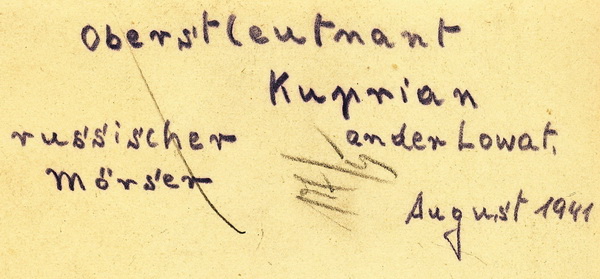 Oberstleutnant
Kuprian
russischer an der Lowat.
Mörser
August 1941